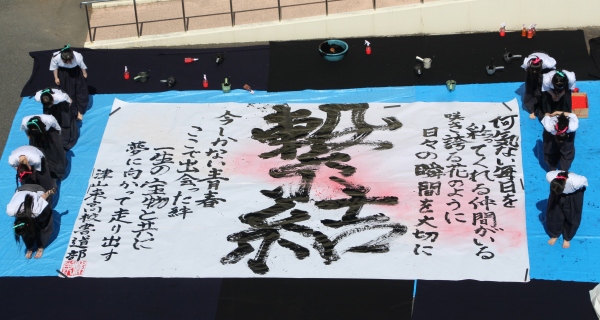 何気ない毎日を
てくれる仲間がいる
咲き誇る花のように
日々の瞬間を大切に
繋結
今しかない青春
ここで出会った絆
一生の宝物と共に
夢に向かって走り出す
津山東高校書道部